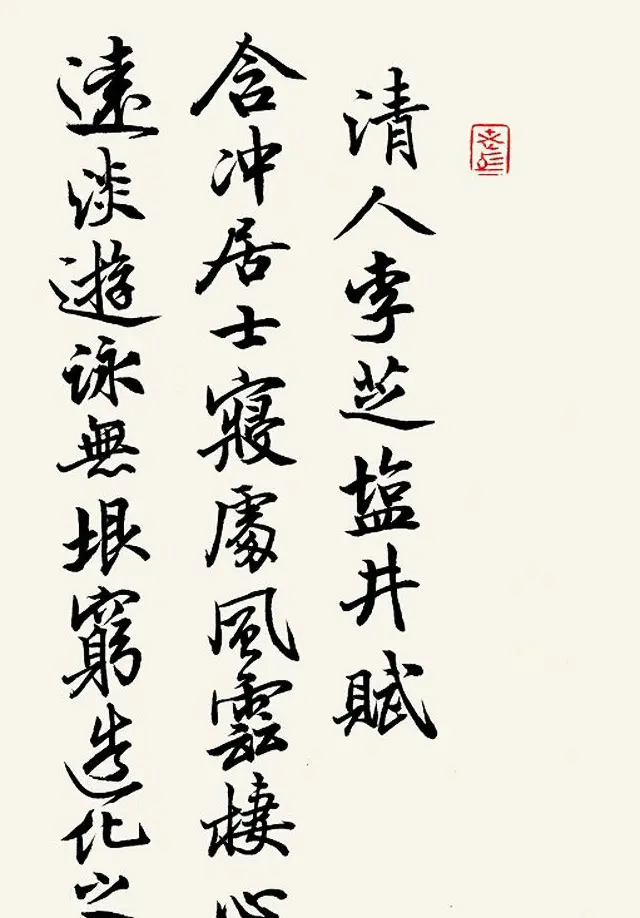 清人李芝塩井賦
含冲居士寢處風雲棲心
遠淡遊詠無垠窮造化之